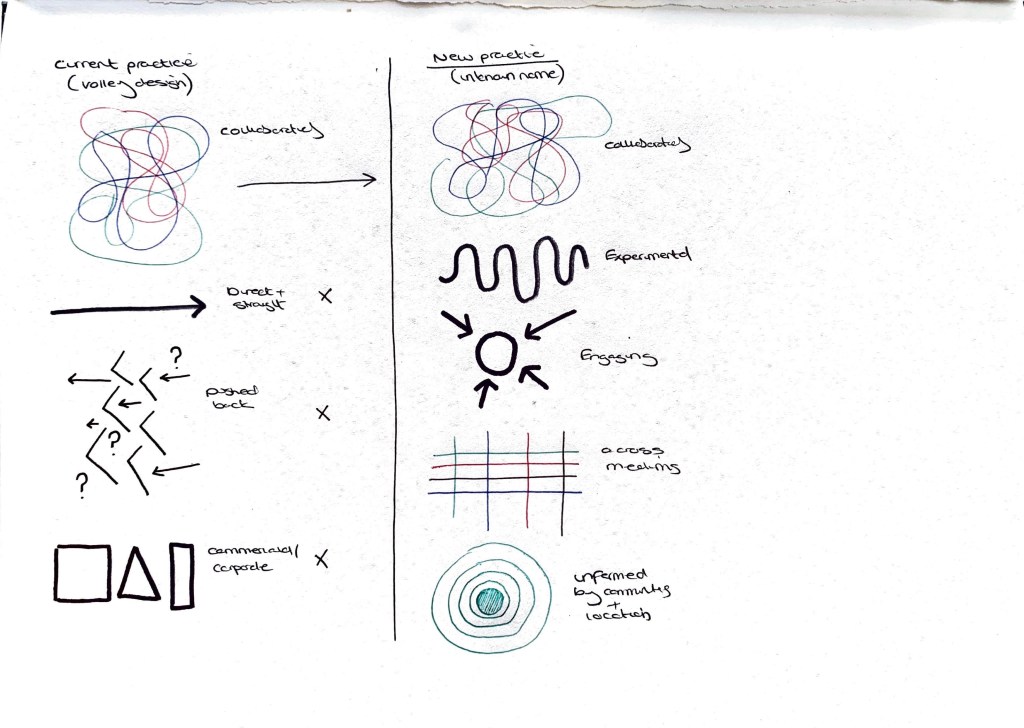 Current practice
(volley design)
collaborative
Direct +
straight
X
?
pushed
back
X
?
?
commercial/
corporate
X
New practice
(unknown name)
collaborative
Experimental
Engaging
across
mediums
informed
by community
+
location